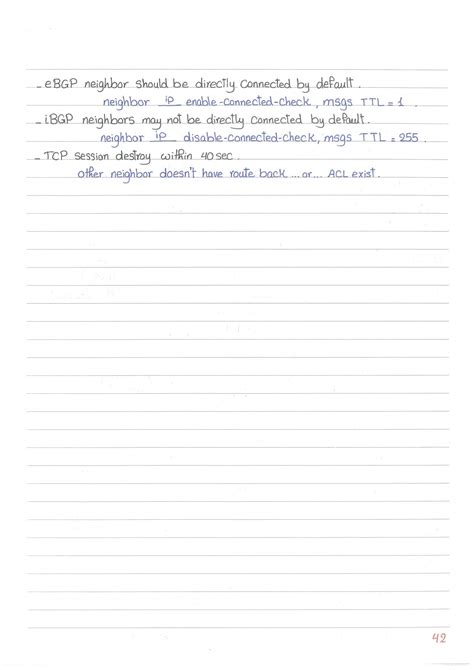 - eBGP neighbor should be directly connected by default.
neighbor ip enable-connected-check, msgs TTL = 1.
- iBGP neighbors may not be directly connected by default.
neighbor ip disable-connected-check, msgs TTL = 255.
- TCP session destroy within 40 sec.
other neighbor doesn't have route back ... or ... ACL exist.
42